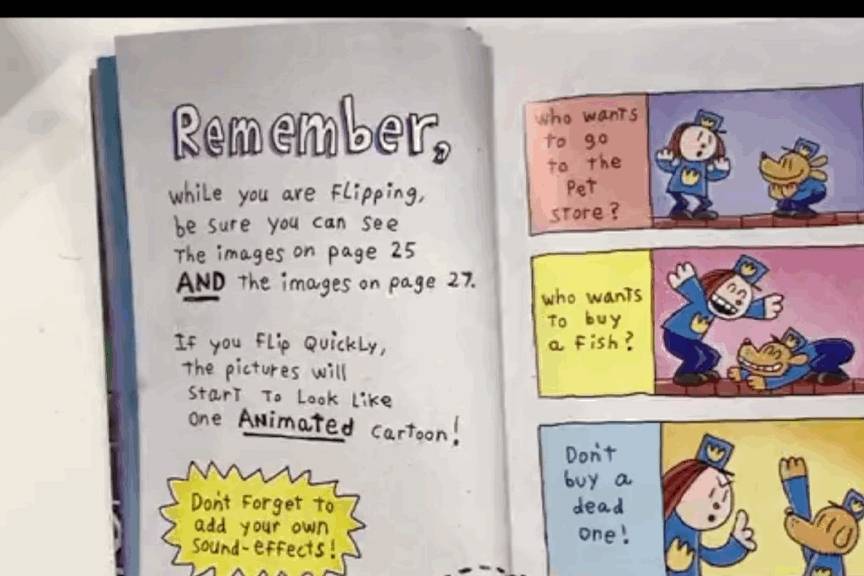 Remember,
while you are FLipping,
be sure you can see
The images on page 25
AND the images on page 27.
If you FLip QuickLy,
the pictures will
STarT To Look Like
one ANiMaTed carToon!
Don't Forget to
add your own
Sound-effects!
who wanTs
to go
to the
PeT
STore?
who wanTs
To buy
a Fish?
Don't
buy a
dead
one!